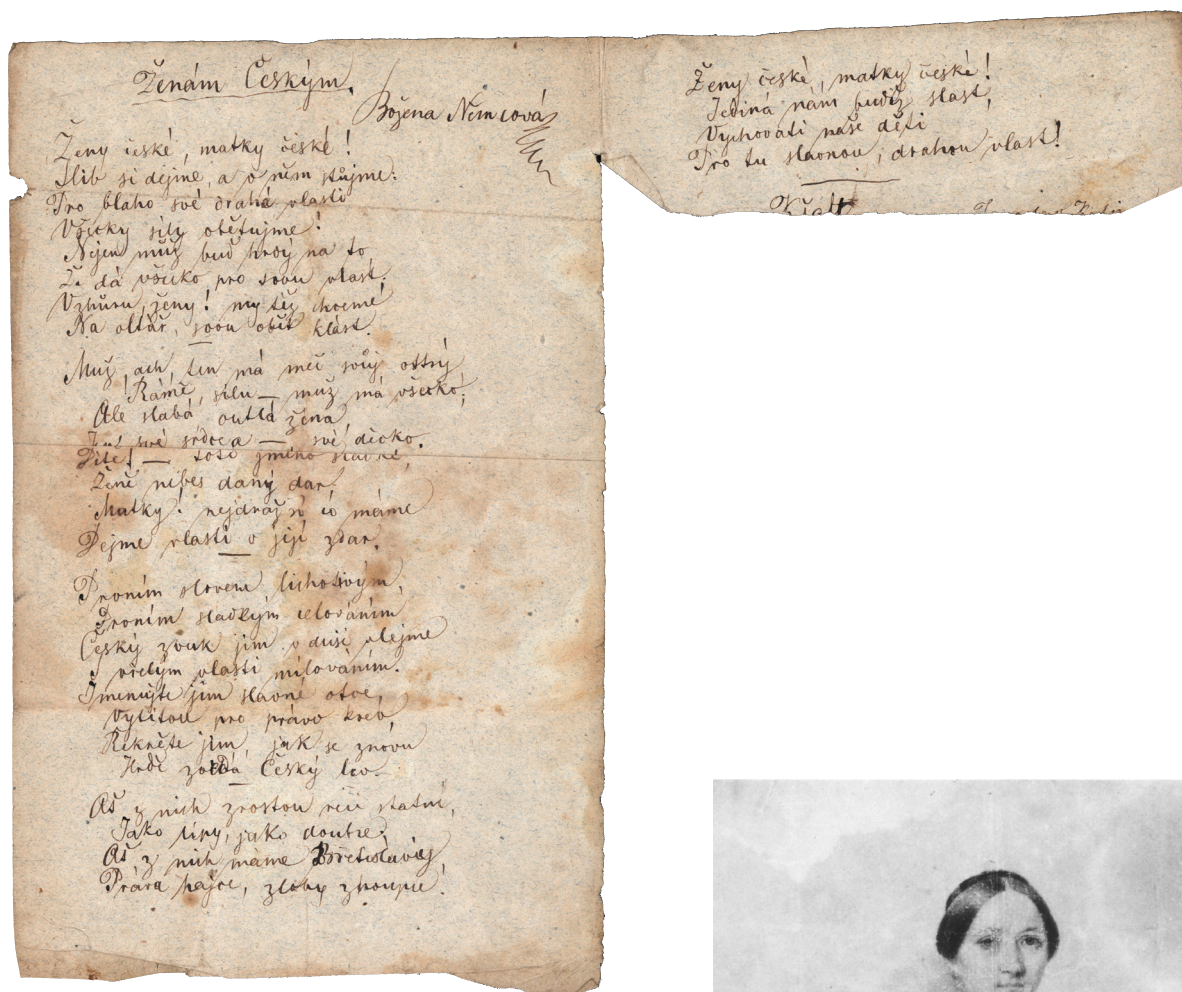 Ženám Českým.
Božena Němcová
Ženy české, matky české!
Slib si dejme, a v něm stůjme:
Pro blaho své drahé vlasti
Všecky síly obětujme!
Nejen muž buď hrdý na to,
Že dá všecko pro svou vlast,
Vzhůru, ženy! my též chceme
Na oltář svou oběť klást.
Muž, ach, ten má meč svůj ostrý
Rámě, sílu — muž má všecko;
Ale slabá outlá žena
své srdce a — své děcko.
Dítě! — toto jméno slavné,
Ženě nebes daný dar!
Matky! nejdražší co máme
Dejme vlasti v její zdar.
Prvním slovem lichotivým,
Prvním sladkým celováním
Český zvuk jim v duši vlejme
S vřelým vlasti milováním.
Jmenujte jim slavné otce,
Vylitou pro právo krev,
Řekněte jim, jak se znovu
Hrdě zvedá Český lev.
Ať z nich zrostou reci statní,
Jako lípy, jako doubce,
Ať z nich máme Břetislavy
Práva hájce, zloby zhoubce!
Ženy české, matky české!
Jediná nám budiž slast,
Vychovati naše děti
Pro tu slavnou, drahou vlast!